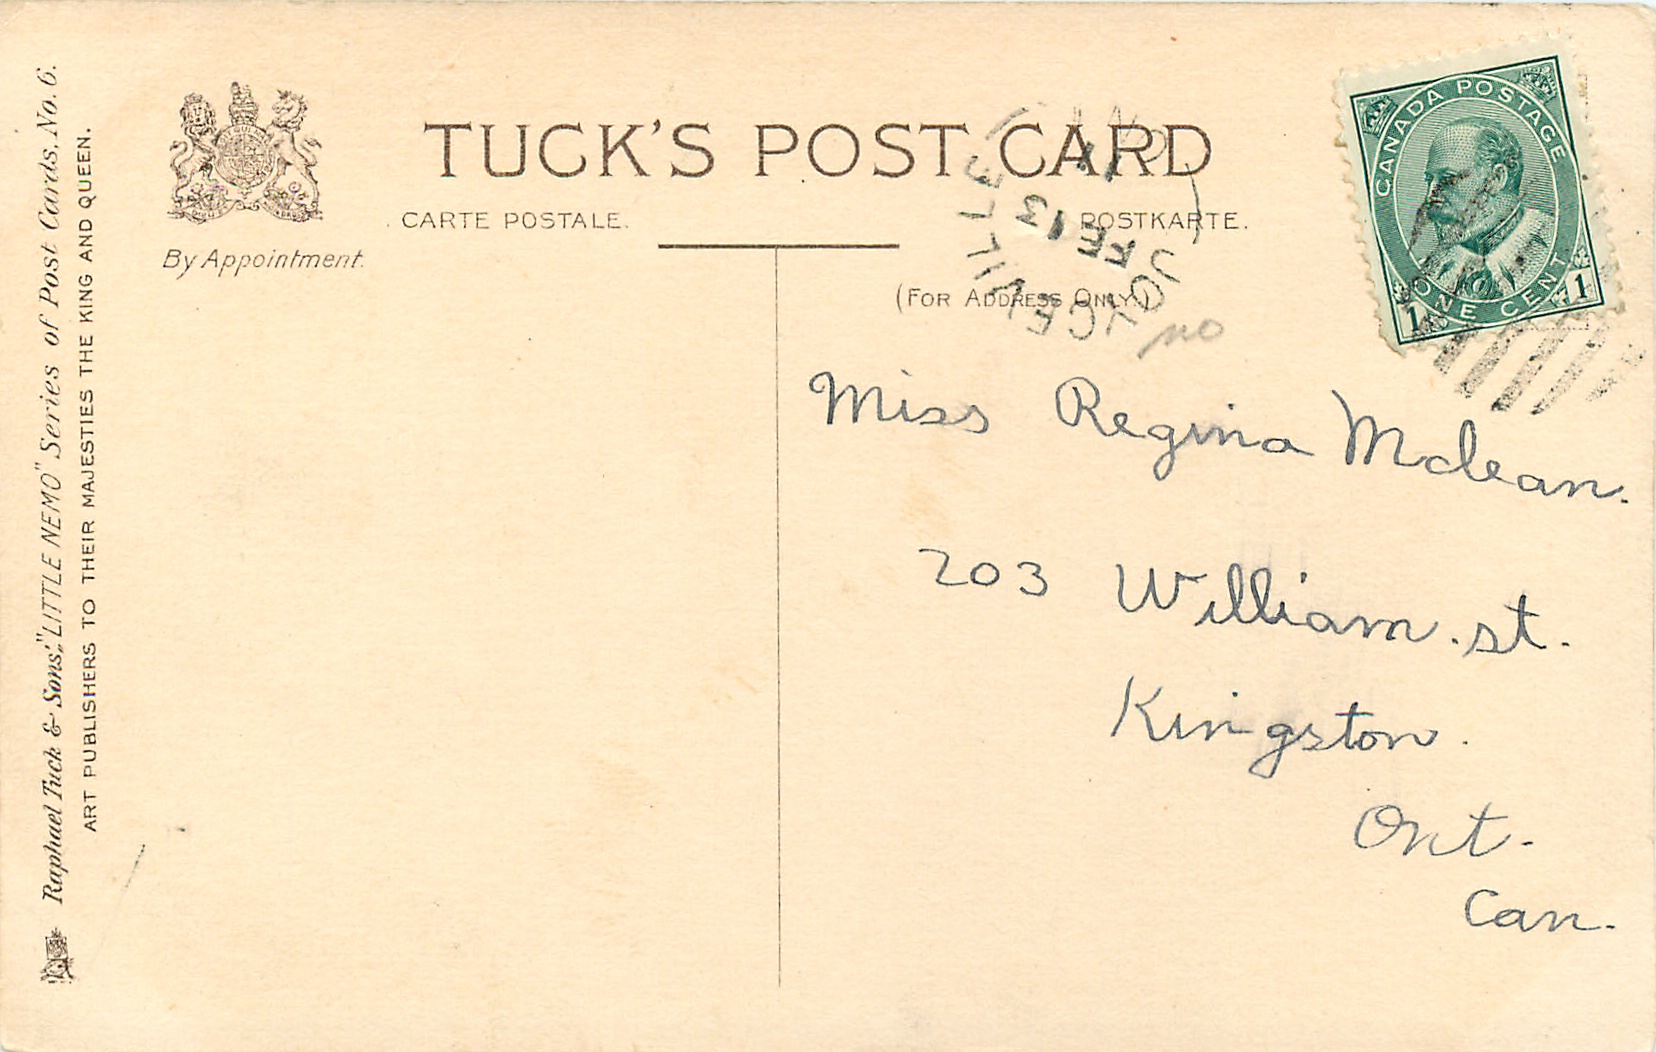 Raphael Tuck & Sons', "LITTLE NEMO" Series of Post Cards, No. 6.
ART PUBLISHERS TO THEIR MAJESTIES THE KING AND QUEEN.
By Appointment.
TUCK'S POST CARD
CARTE POSTALE.
POSTKARTE.
(FOR ADDRESS ONLY.)
JOYCEVILLE
FE 13
CANADA POSTAGE
ONE CENT
1 1
no
Miss Regina Mclean.
203 William. st.
Kingston.
Ont.
Can.